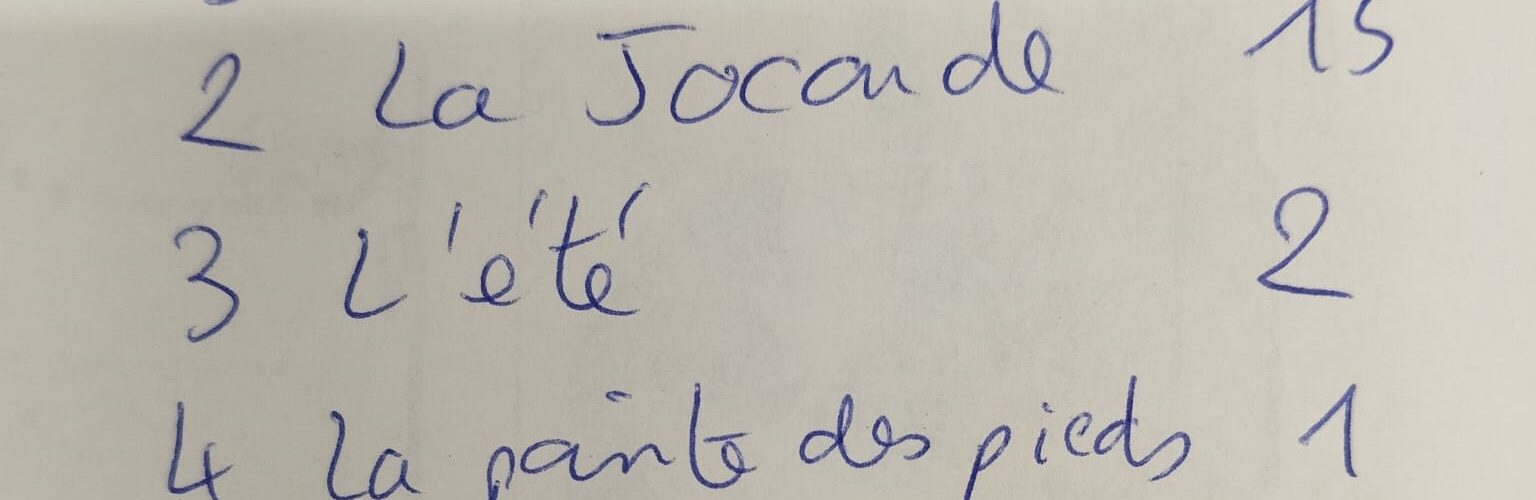 2 La Joconde 15
3 L'été 2
4 La pointe des pieds 1